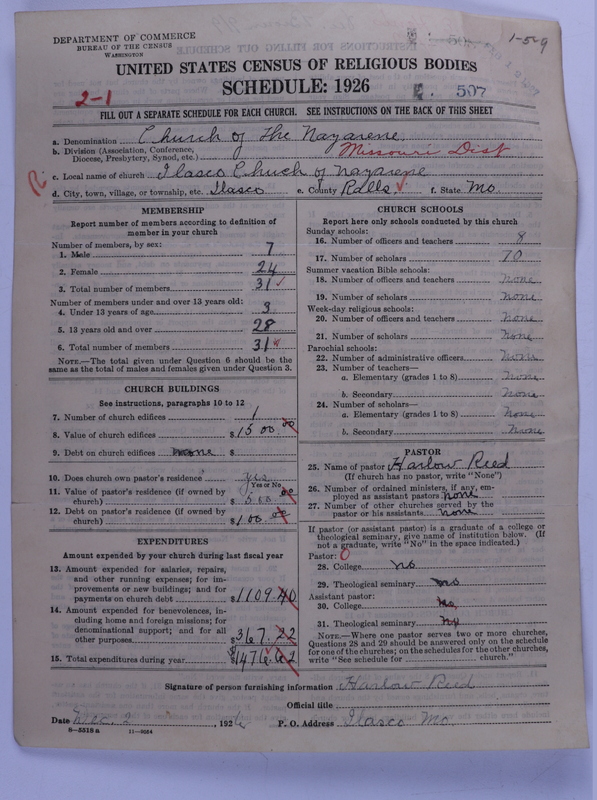 1-5-9
DEPARTMENT OF COMMERCE
BUREAU OF THE CENSUS
WASHINGTON
UNITED STATES CENSUS OF RELIGIOUS BODIES
SCHEDULE: 1926
507
2-1
FILL OUT A SEPARATE SCHEDULE FOR EACH CHURCH. SEE INSTRUCTIONS ON THE BACK OF THIS SHEET
a. Denomination Church of the Nazarene
b. Division (Association, Conference, Diocese, Presbytery, Synod, etc.) Missouri Dist
c. Local name of church Ilasco Chuch of Nazarene
d. City, town, village, or township, etc. Ilasco e. County Ralls f. State Mo.
MEMBERSHIP
Report number of members according to definition of
member in your church
Number of members, by sex:
1. Male 7
2. Female 24
3. Total number of members 31
Number of members under and over 13 years old:
4. Under 13 years of age 3
5. 13 years old and over 28
6. Total number of members 31
NOTE.—The total given under Question 6 should be
same as the total of males and females given under Question 3.
CHURCH BUILDINGS
See instructions, paragraphs 10 to 12
7. Number of church edifices 1
8. Value of church edifices $1500.00
9. Debt on church edifices none $
10. Does church own pastor's residence yes
Yes or No
11. Value of pastor's residence (if owned by
church) $500.00
12. Debt on pastor's residence (if owned by
church) $100.00
EXPENDITURES
Amount expended by your church during last fiscal year
13. Amount expended for salaries, repairs,
and other running expenses; for im-
provements or new buildings; and for
payments on church debt $1109.40
14. Amount expended for benevolences, in-
cluding home and foreign missions; for
denominational support; and for all
other purposes $367.22
15. Total expenditures during year $1476.62
CHURCH SCHOOLS
Report here only schools conducted by this church
Sunday schools:
16. Number of officers and teachers 8
17. Number of scholars 70
Summer vacation Bible schools:
18. Number of officers and teachers none
19. Number of scholars none
Week-day religious schools:
20. Number of officers and teachers none
21. Number of scholars none
Parochial schools:
22. Number of administrative officers none
23. Number of teachers—
a. Elementary (grades 1 to 8) none
b. Secondary none
24. Number of scholars—
a. Elementary (grades 1 to 8) none
b. Secondary none
PASTOR
25. Name of pastor Harlow Reed
(If church has no pastor, write "None")
26. Number of ordained ministers, if any, em-
ployed as assistant pastors none
27. Number of other churches served by the
pastor or his assistants none
If pastor (or assistant pastor) is a graduate of a college or
theological seminary, give name of institution below. (If
not a graduate, write "No" in the space indicated.)
Pastor: 0
28. College no
29. Theological seminary no
Assistant pastor:
30. College no
31. Theological seminary no
NOTE.—Where one pastor serves two or more churches,
Questions 28 and 29 should be answered only on the schedule
for one of the churches; on the schedules for the other churches,
write "See schedule for church."
Signature of person furnishing information Harlow Reed
Official title
Date Dec. 2, 1926 P. O. Address Ilasco Mo
8-5518a 11-9054